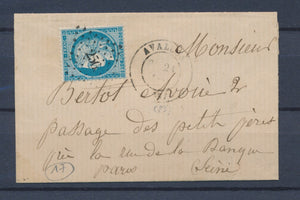 AVAL
Monsieur
21
Bertot Avoué 2
passage des petits pères
près la rue de la Banque
Paris (Seine)
17